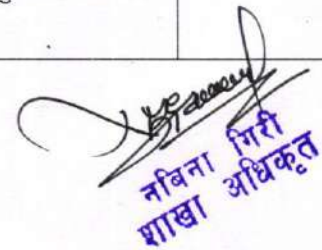 नबिना गिरी
शाखा अधिकृत